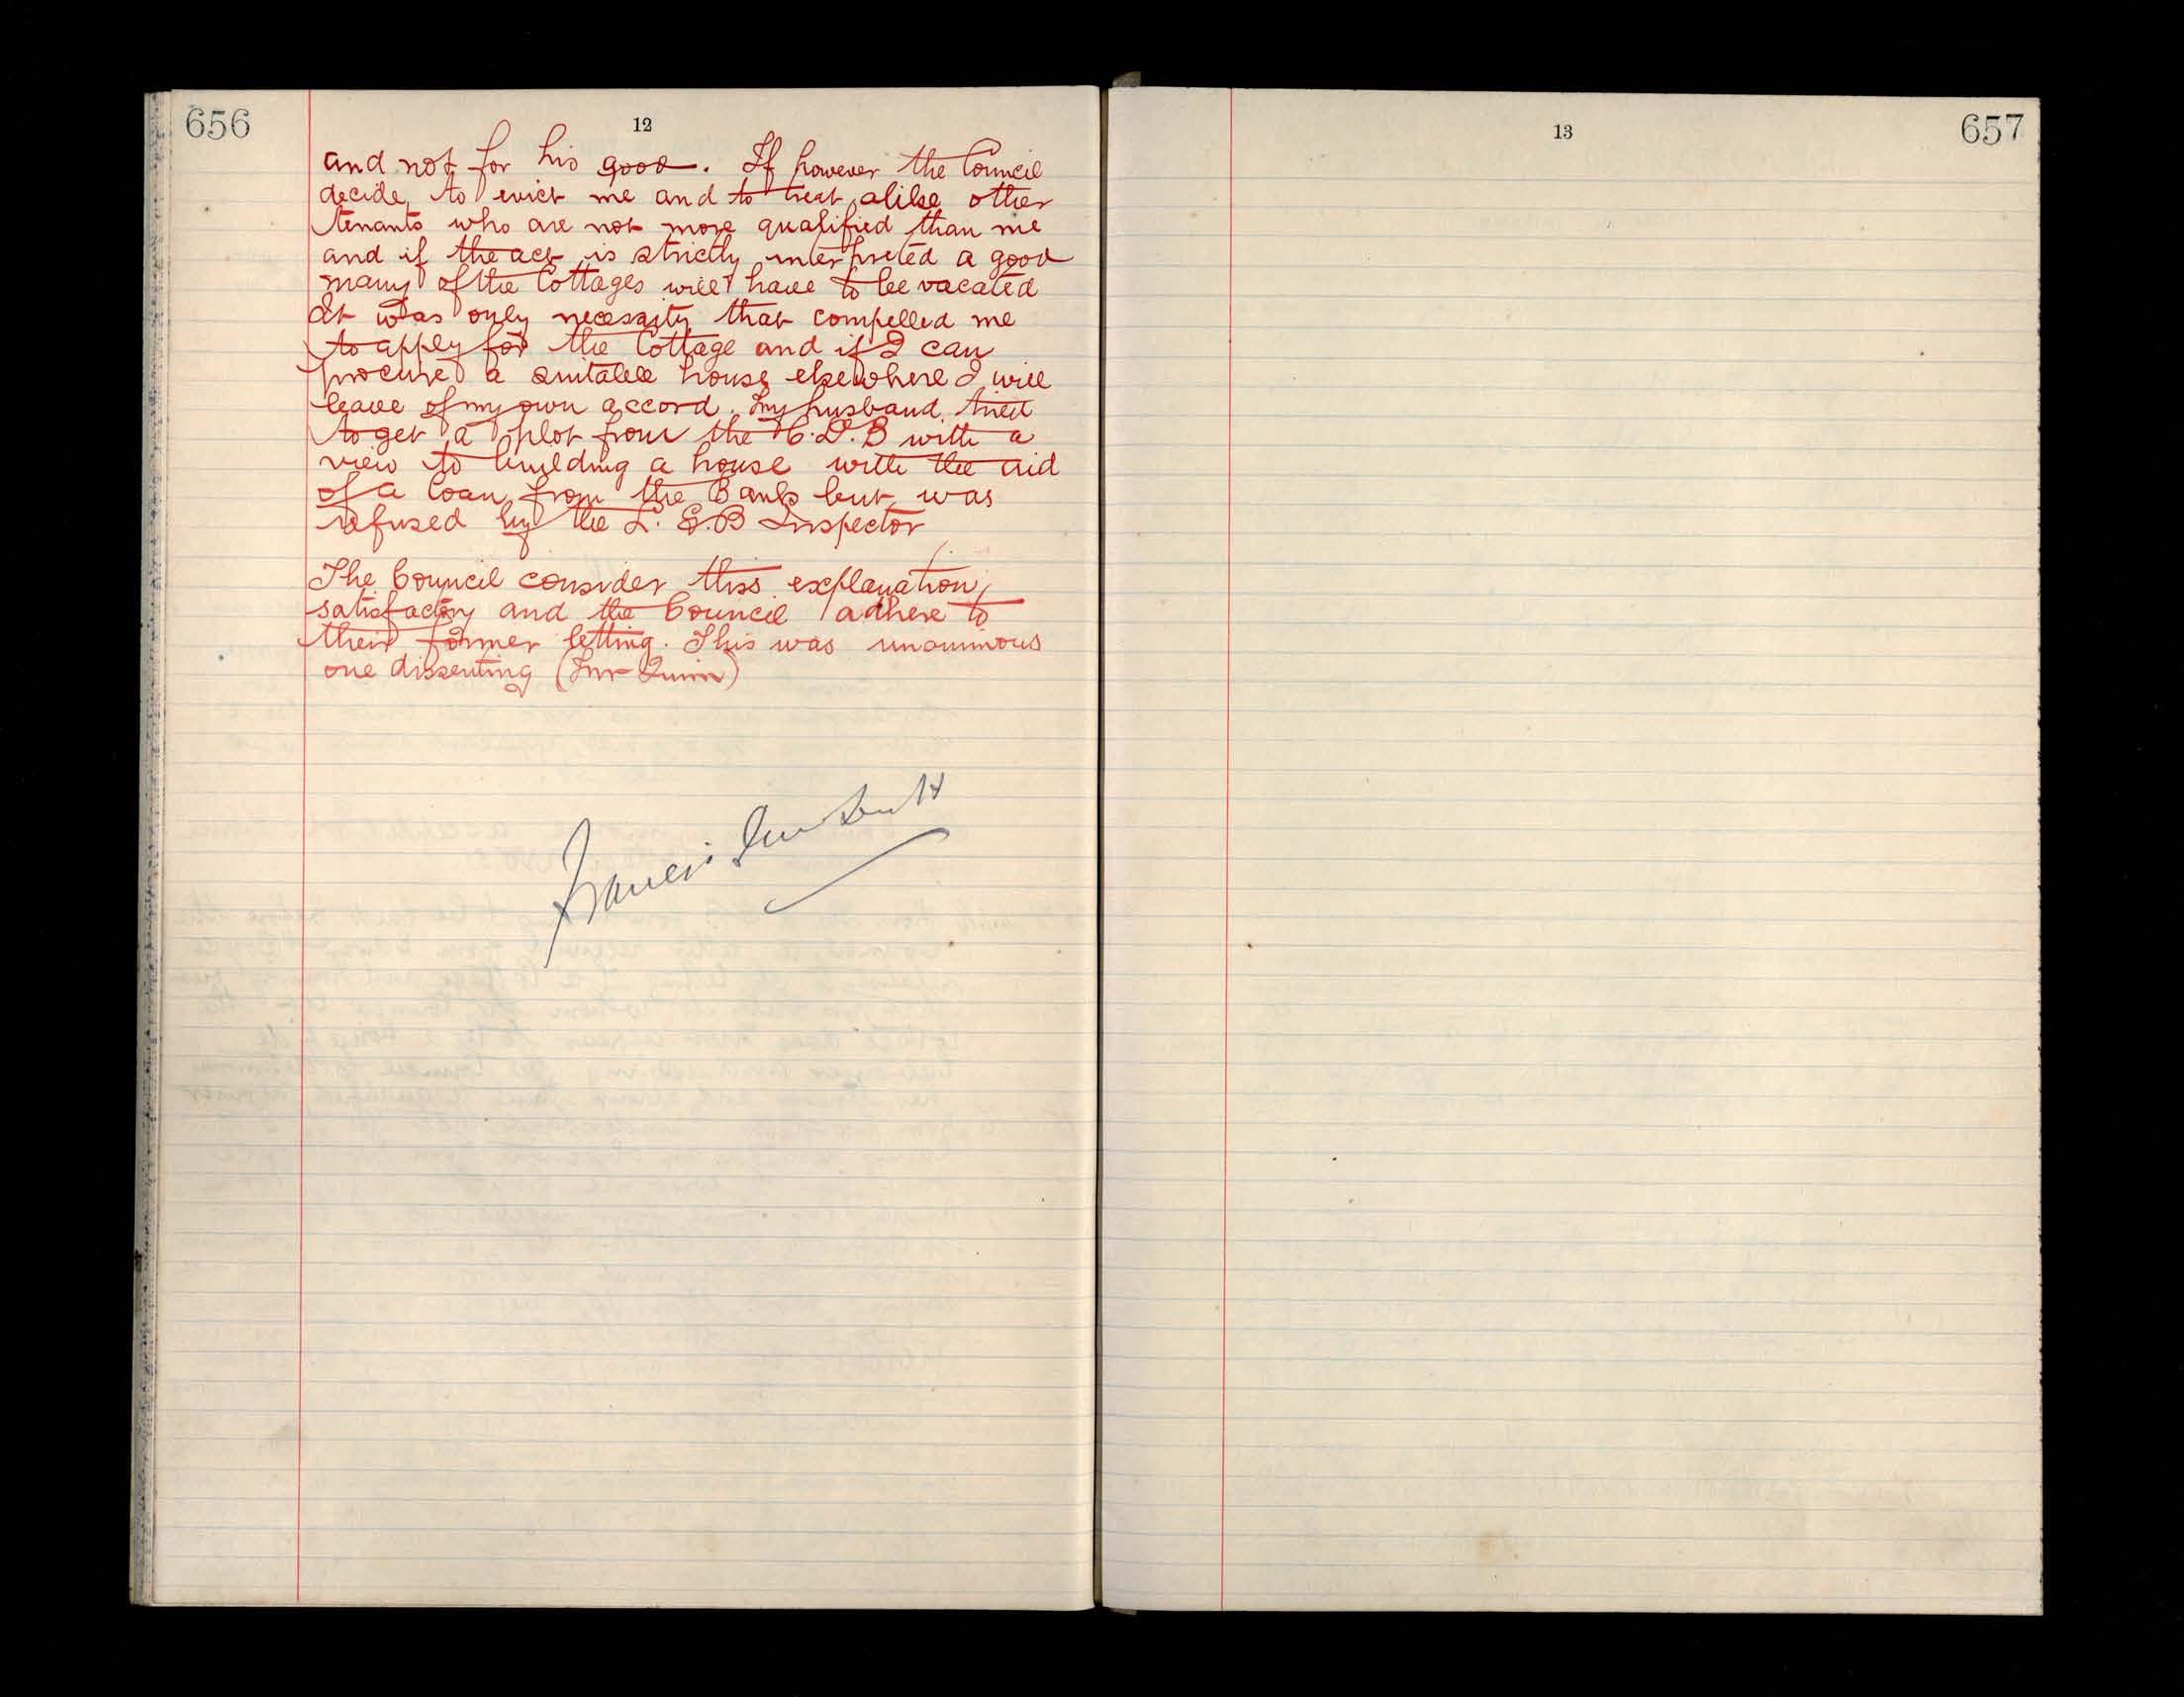 656
12
and not for his good. If however the Council
decide to evict me and to treat alike other
tenants who are not more qualified than me
and if the act is strictly interpreted a good
many of the Cottages will have to be vacated
It was only necessity that compelled me
to apply for the Cottage and if I can
procure a suitable house elsewhere I will
leave of my own accord. My husband tried
to get a plot from the C.D.B with a
view to building a house with the aid
of a loan from the Bank but was
refused by the L.G.B Inspector
The Council consider this explanation
satisfactory and the Council adhere to
their former letting. This was unanimous
one dissenting (Mr Quinn)
Francis
13
657